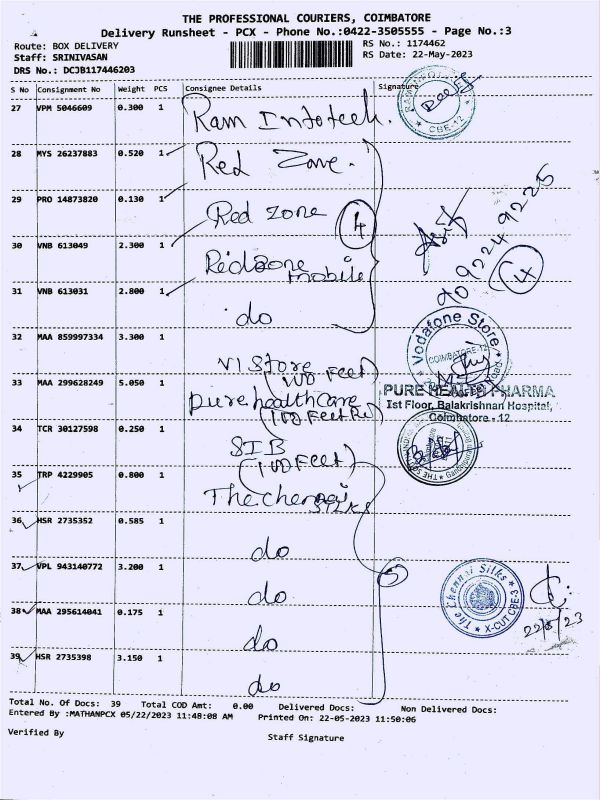 THE PROFESSIONAL COURIERS, COIMBATORE
Delivery Runsheet - PCX - Phone No.:0422-3505555 - Page No.:3
Route: BOX DELIVERY
RS No.: 1174462
Staff: SRINIVASAN
RS Date: 22-May-2023
DRS No.: DCJB117446203
S No Consignment No Weight PCS Consignee Details Signature
27 VPM 5046609 0.300 1 Ram Infotech.
CBE-12
28 MYS 26237883 0.520 1 Red Zone.
29 PRO 14873820 0.130 1 Red zone
4
30 VNB 613049 2.300 1 Redzone mobile
4
31 VNB 613031 2.800 1 do
32 MAA 859997334 3.300 1 VI Store
(100 Feet)
Vodafone Store
COIMBATORE-12
33 MAA 299628249 5.050 1 pure healthcare
(100 Feet Rd)
PURE HEALTH PHARMA
Ist Floor, Balakrishnan Hospital,
Coimbatore - 12
34 TCR 30127598 0.250 1 SIB
(100 Feet)
35 TRP 4229905 0.800 1 The chennai silks
36 HSR 2735352 0.585 1 do
37 VPL 943140772 3.200 1 do
5
The Chennai Silks
X-CUT CBE-3
38 MAA 295614041 0.175 1 do
22/5/23
39 HSR 2735398 3.150 1 do
Total No. Of Docs: 39 Total COD Amt: 0.00 Delivered Docs: Non Delivered Docs:
Entered By :MATHANPCX 05/22/2023 11:48:08 AM Printed On: 22-05-2023 11:50:06
Verified By
Staff Signature